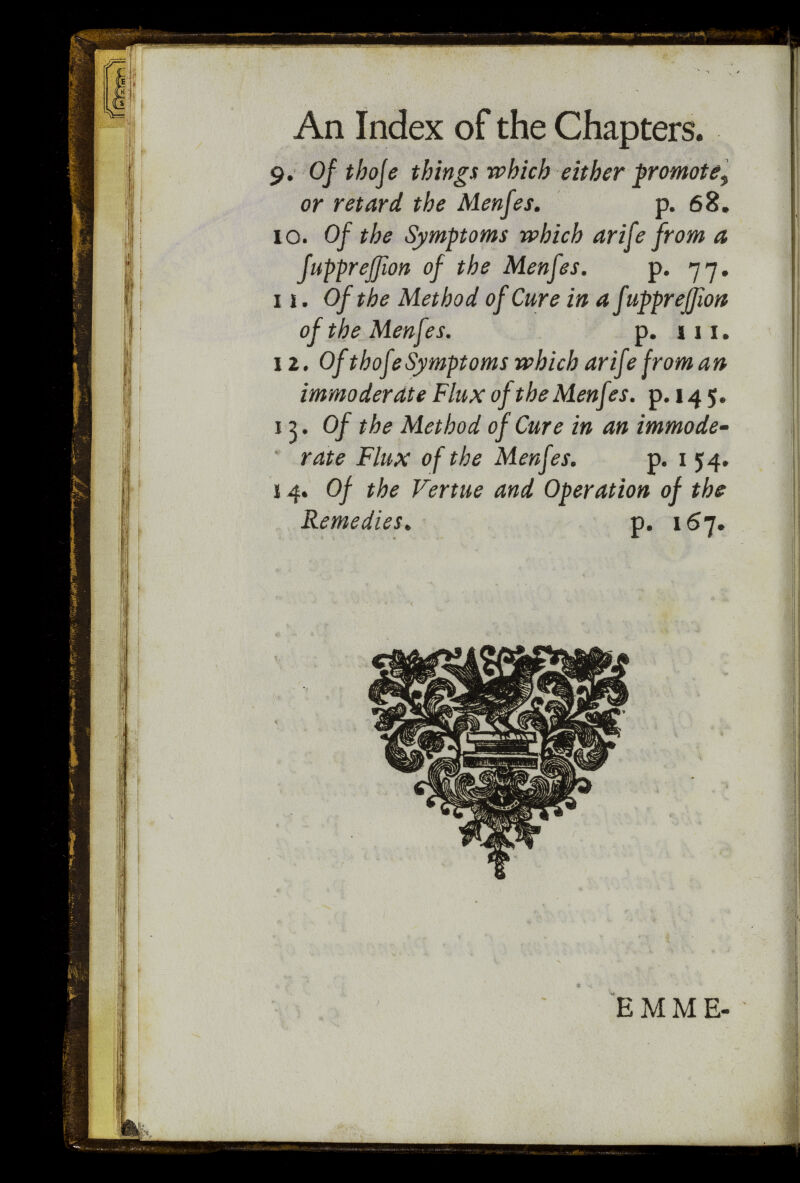 An Index of the Chapters.
9. Of those things which either promote,
or retard the Menses. p. 68.
10. Of the Symptoms which arise from a
suppression of the Menses. p. 77.
11. Of the Method of Cure in a suppression
of the Menses. p. 111.
12. Of those Symptoms which arise from an
immoderate Flux of the Menses. p. 145.
13. Of the Method of Cure in an immode-
rate Flux of the Menses. p. 154.
14. Of the Vertue and Operation of the
Remedies. p. 167.
EMME-